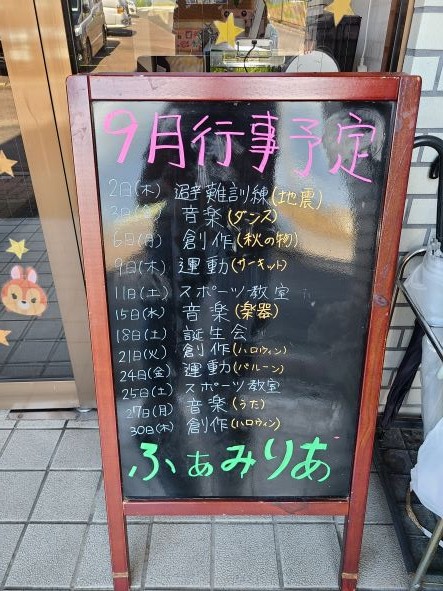 9月行事予定
2日(木) 避難訓練(地震)
3日(金) 音楽(ダンス)
6日(月) 創作(秋の物)
9日(木) 運動(サーキット)
11日(土) スポーツ教室
15日(水) 音楽(楽器)
18日(土) 誕生会
21日(火) 創作(ハロウィン)
24日(金) 運動(バルーン)
25日(土) スポーツ教室
27日(月) 音楽(うた)
30日(木) 創作(ハロウィン)
ふぁみりあ